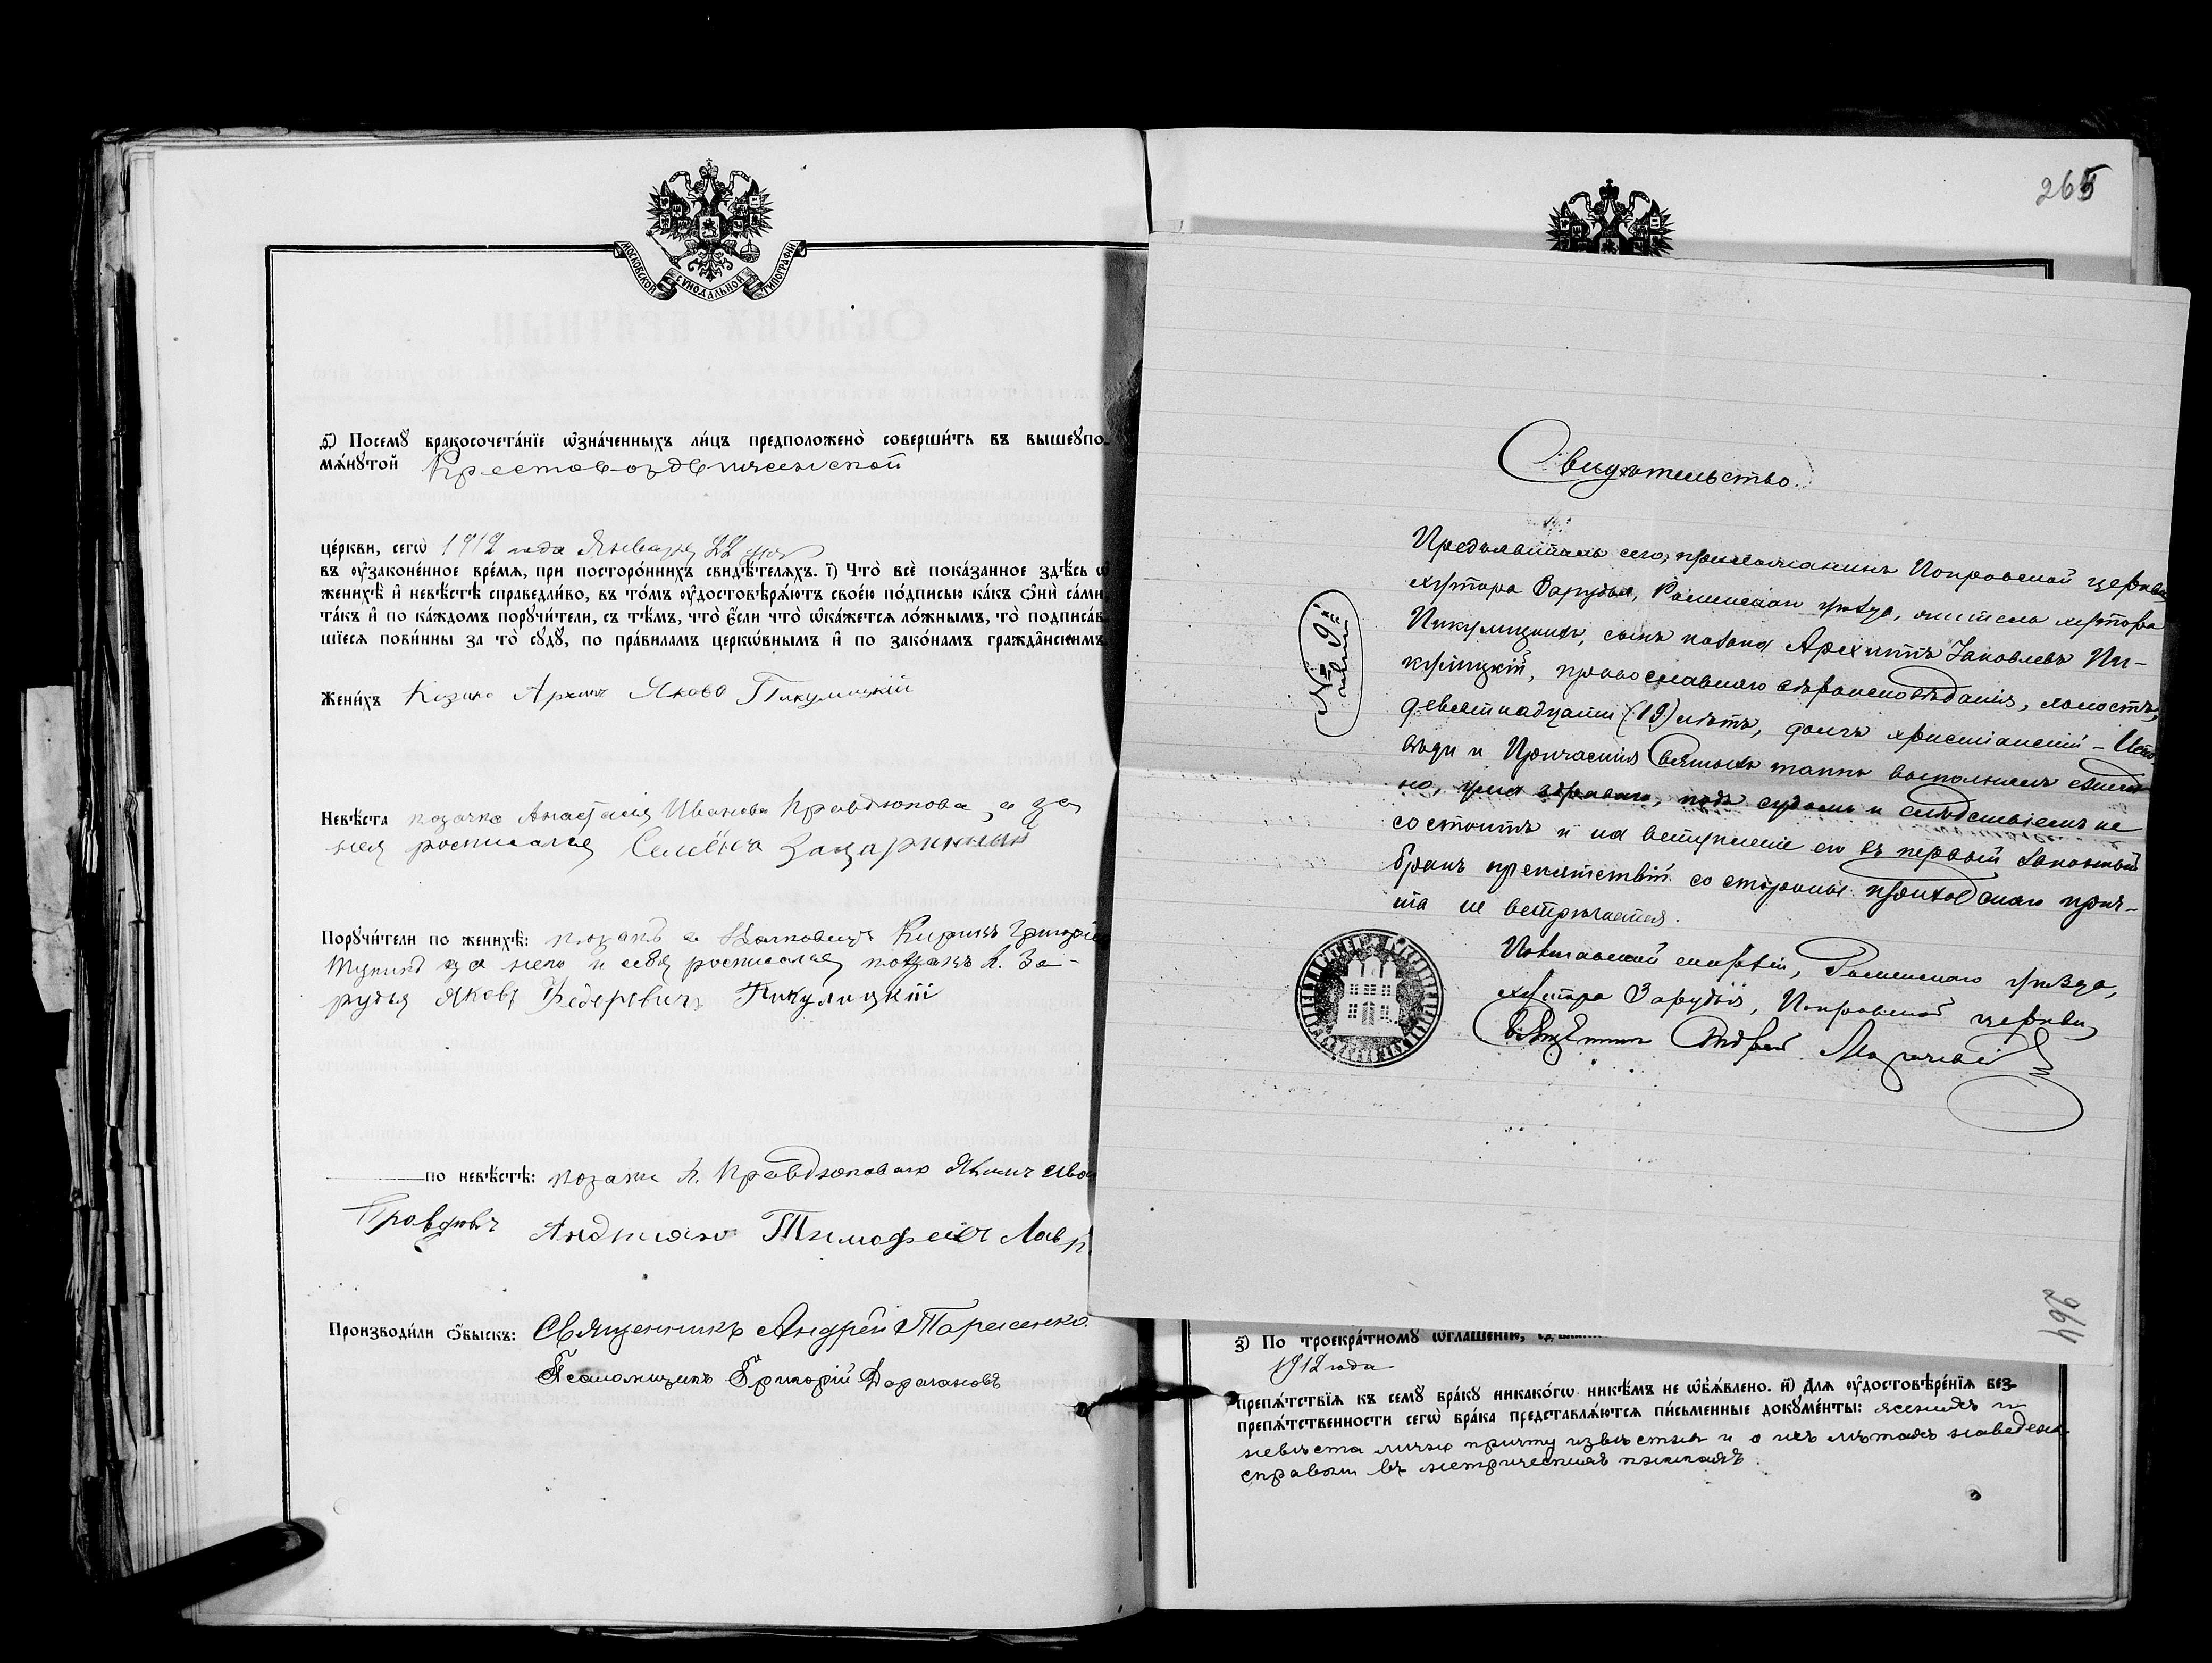 МОСКОВСКОЙ СѴНОДАЛЬНОЙ ТИПОГРАФІИ
Посемꙋ̀ бракосочета́нїе ѡ҆зна́ченныхъ ли́цъ предположено̀ соверши́ть въ вышеꙋпо-
мѧ́нꙋтой Крестовоздвиженской
це́ркви, сегѡ̀ 1912 года Января 22 дня
въ ᲂу҆зако́ненное вре́мѧ, при посторо́ннихъ свидѣ́телѧхъ. і҃) Что̀ всѐ пока́занное здѣ́сь ѡ҆
женихѣ̀ и҆ невѣ́стѣ справедли́во, въ то́мъ ᲂу҆достовѣрѧ́ютъ свое́ю по́дписью ка́къ ѻ҆нѝ са́ми,
та́къ и҆ по ка́ждомъ порꙋчи́тели, съ тѣ́мъ, что̀ є҆́сли что̀ ѡ҆ка́жетсѧ ло́жнымъ, то̀ подписа́в-
шїесѧ пови́нны за то̀ сꙋдꙋ̀, по пра́виламъ церкѡ́внымъ и҆ по зако́намъ гражда́нскимъ.
Жени́хъ Козакъ Архип Яковъ Пикулицкій
Невѣ́ста козачка Анастасія Ивановна Правдюкова, а за
нея росписался
Порꙋчи́тели по женихѣ̀: козакъ Кирилъ Григоріе
за него и себя росписался козакъ х. За-
рудья Яковъ Федоревичъ Пикулицкій
по невѣ́стѣ: козаки х. Правдюковаго Ив
Андріянъ Тимофеевъ Лавр
Производи́ли ѻ҆́быскъ: Священникъ Андрей Тарасенко
Псаломщикъ Григорій Дарагановъ
265
Свидѣтельство.
№ 9й
Предъявитель сего, прихожанинъ Покровской церкви
хутора Зарудья, Роменскаго уѣзда, житель хутора
Пикулицкихъ, сынъ козака Архиппъ Іаковлевъ Пи-
кулицкій, православнаго вѣроисповѣданія, холостъ,
девятнадцати (19) лѣтъ, долгъ христіанскій – Испо-
вѣди и Причастія Святыхъ таинъ выполнялъ ежегод-
но, ума здраваго, подъ судомъ и слѣдствіемъ не
состоитъ и на вступленіе его въ первый законный
бракъ препятствій со стороны приходскаго прич-
та не встрѣчается.
Полтавской епархіи, Роменскаго уѣзда,
хутора Зарудья, Покровской церкви
Священникъ Андрей
264
з҃) По троекра́тномꙋ ѡ҆глаше́нїю,
1912 года
препѧ́тствїѧ къ семꙋ̀ бра́кꙋ никако́гѡ никѣ́мъ не ѡ҆б̾ѧ́влено. и҃) Длѧ ᲂу҆достовѣре́нїѧ без-
препѧ́тственности сегѡ̀ бра́ка представлѧ́ютсѧ пи́сьменные докꙋме́нты: женихъ и
невѣста лично причту извѣстны и о ихъ лѣтахъ наведены
справки въ метрическихъ книгахъ.